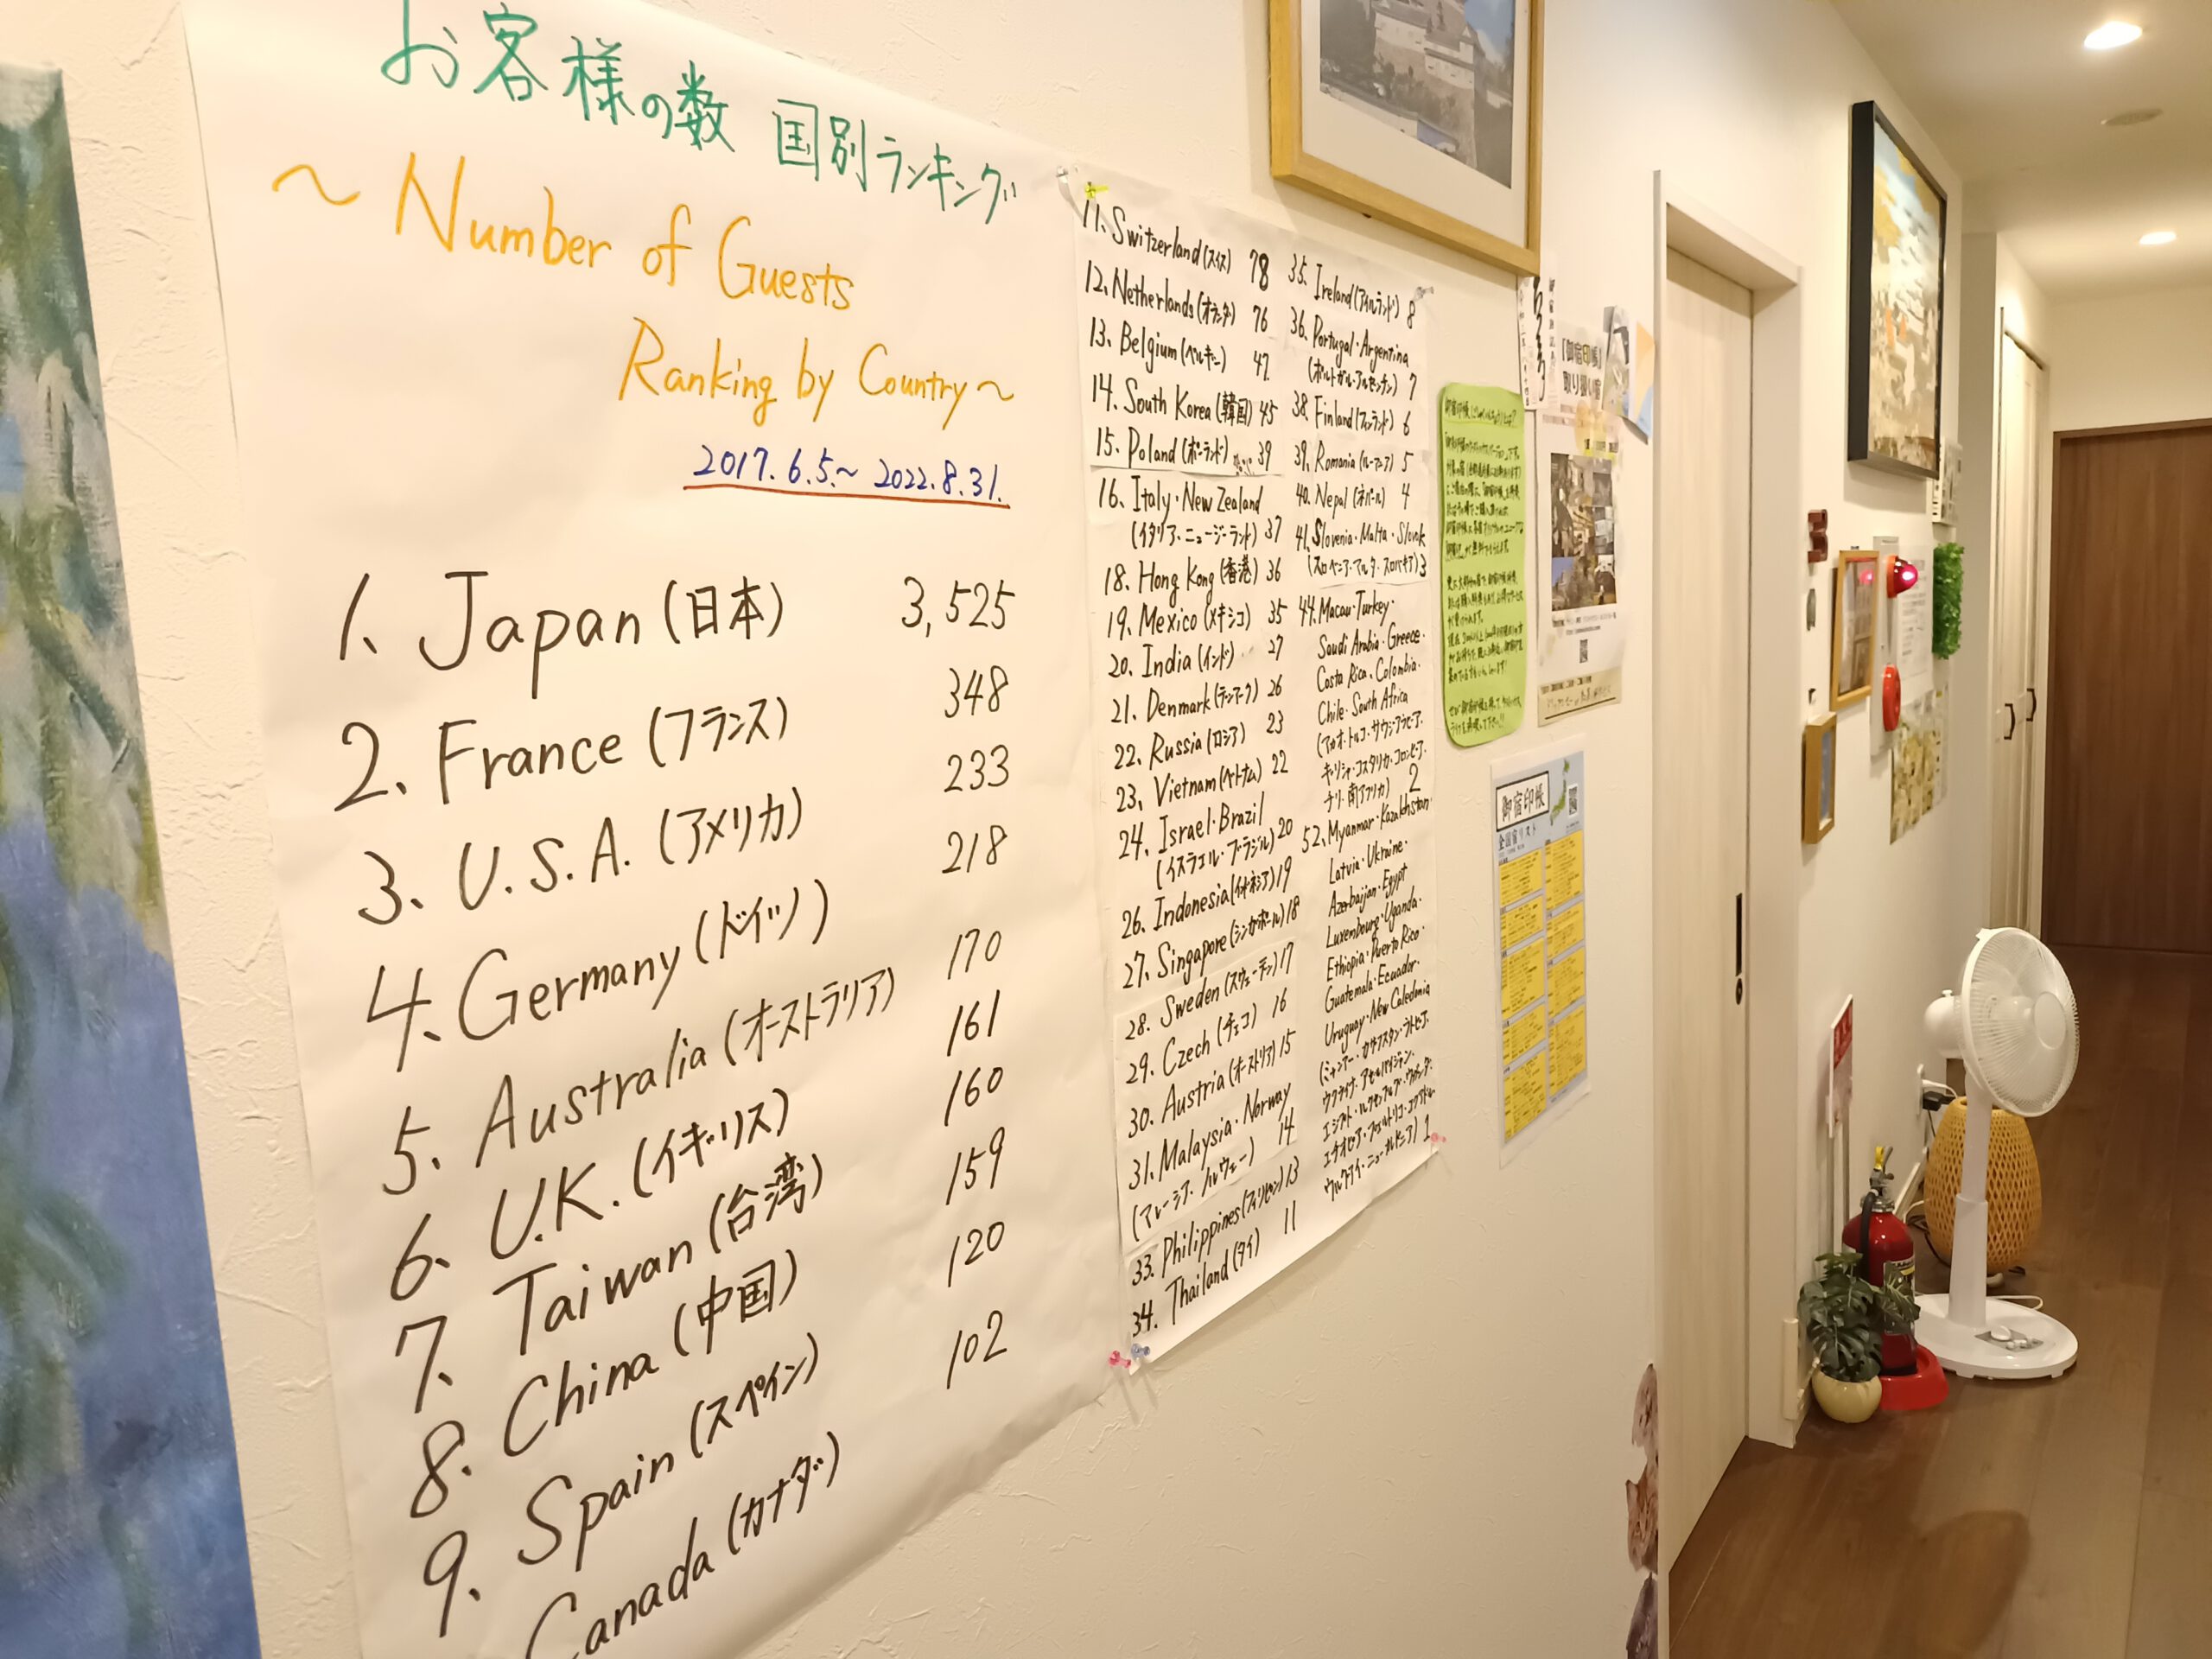 お客様の数 国別ランキング
～Number of Guests
Ranking by Country～
2017.6.5.～2022.8.31.
1. Japan (日本) 3,525
2. France (フランス) 348
3. U.S.A. (アメリカ) 233
4. Germany (ドイツ) 218
5. Australia (オーストラリア) 170
6. U.K. (イギリス) 161
7. Taiwan (台湾) 160
8. China (中国) 159
9. Spain (スペイン) 120
Canada (カナダ) 102
11. Switzerland (スイス) 78
12. Netherlands (オランダ) 76
13. Belgium (ベルギー) 47
14. South Korea (韓国) 45
15. Poland (ポーランド) 39
16. Italy・New Zealand
(イタリア・ニュージーランド) 37
18. Hong Kong (香港) 36
19. Mexico (メキシコ) 35
20. India (インド) 27
21. Denmark (デンマーク) 26
22. Russia (ロシア) 23
23. Vietnam (ベトナム) 22
24. Israel・Brazil
(イスラエル・ブラジル) 20
26. Indonesia (インドネシア) 19
27. Singapore (シンガポール) 18
28. Sweden (スウェーデン) 17
29. Czech (チェコ) 16
30. Austria (オーストリア) 15
31. Malaysia・Norway
(マレーシア・ノルウェー) 14
33. Philippines (フィリピン) 13
34. Thailand (タイ) 11
35. Ireland (アイルランド) 8
36. Portugal・Argentina
(ポルトガル・アルゼンチン) 7
38. Finland (フィンランド) 6
39. Romania (ルーマニア) 5
40. Nepal (ネパール) 4
41. Slovenia・Malta・Slovak
(スロベニア・マルタ・スロバキア) 3
44. Macau・Turkey・
Saudi Arabia・Greece・
Costa Rica・Colombia・
Chile・South Africa
(マカオ・トルコ・サウジアラビア・
ギリシャ・コスタリカ・コロンビア・
チリ・南アフリカ) 2
52. Myanmar・Kazakhstan・
Latvia・Ukraine・
Azerbaijan・Egypt
Luxembourg・Uganda・
Ethiopia・Puerto Rico・
Guatemala・Ecuador・
Uruguay・New Caledonia
(ミャンマー・カザフスタン・ラトビア・
ウクライナ・アゼルバイジャン・
エジプト・ルクセンブルグ・ウガンダ・
エチオピア・プエルトリコ・エクアドル・
ウルグアイ・ニューカレドニア) 1
「御宿印帳」
取り扱い宿
御宿印帳
全国宿リスト